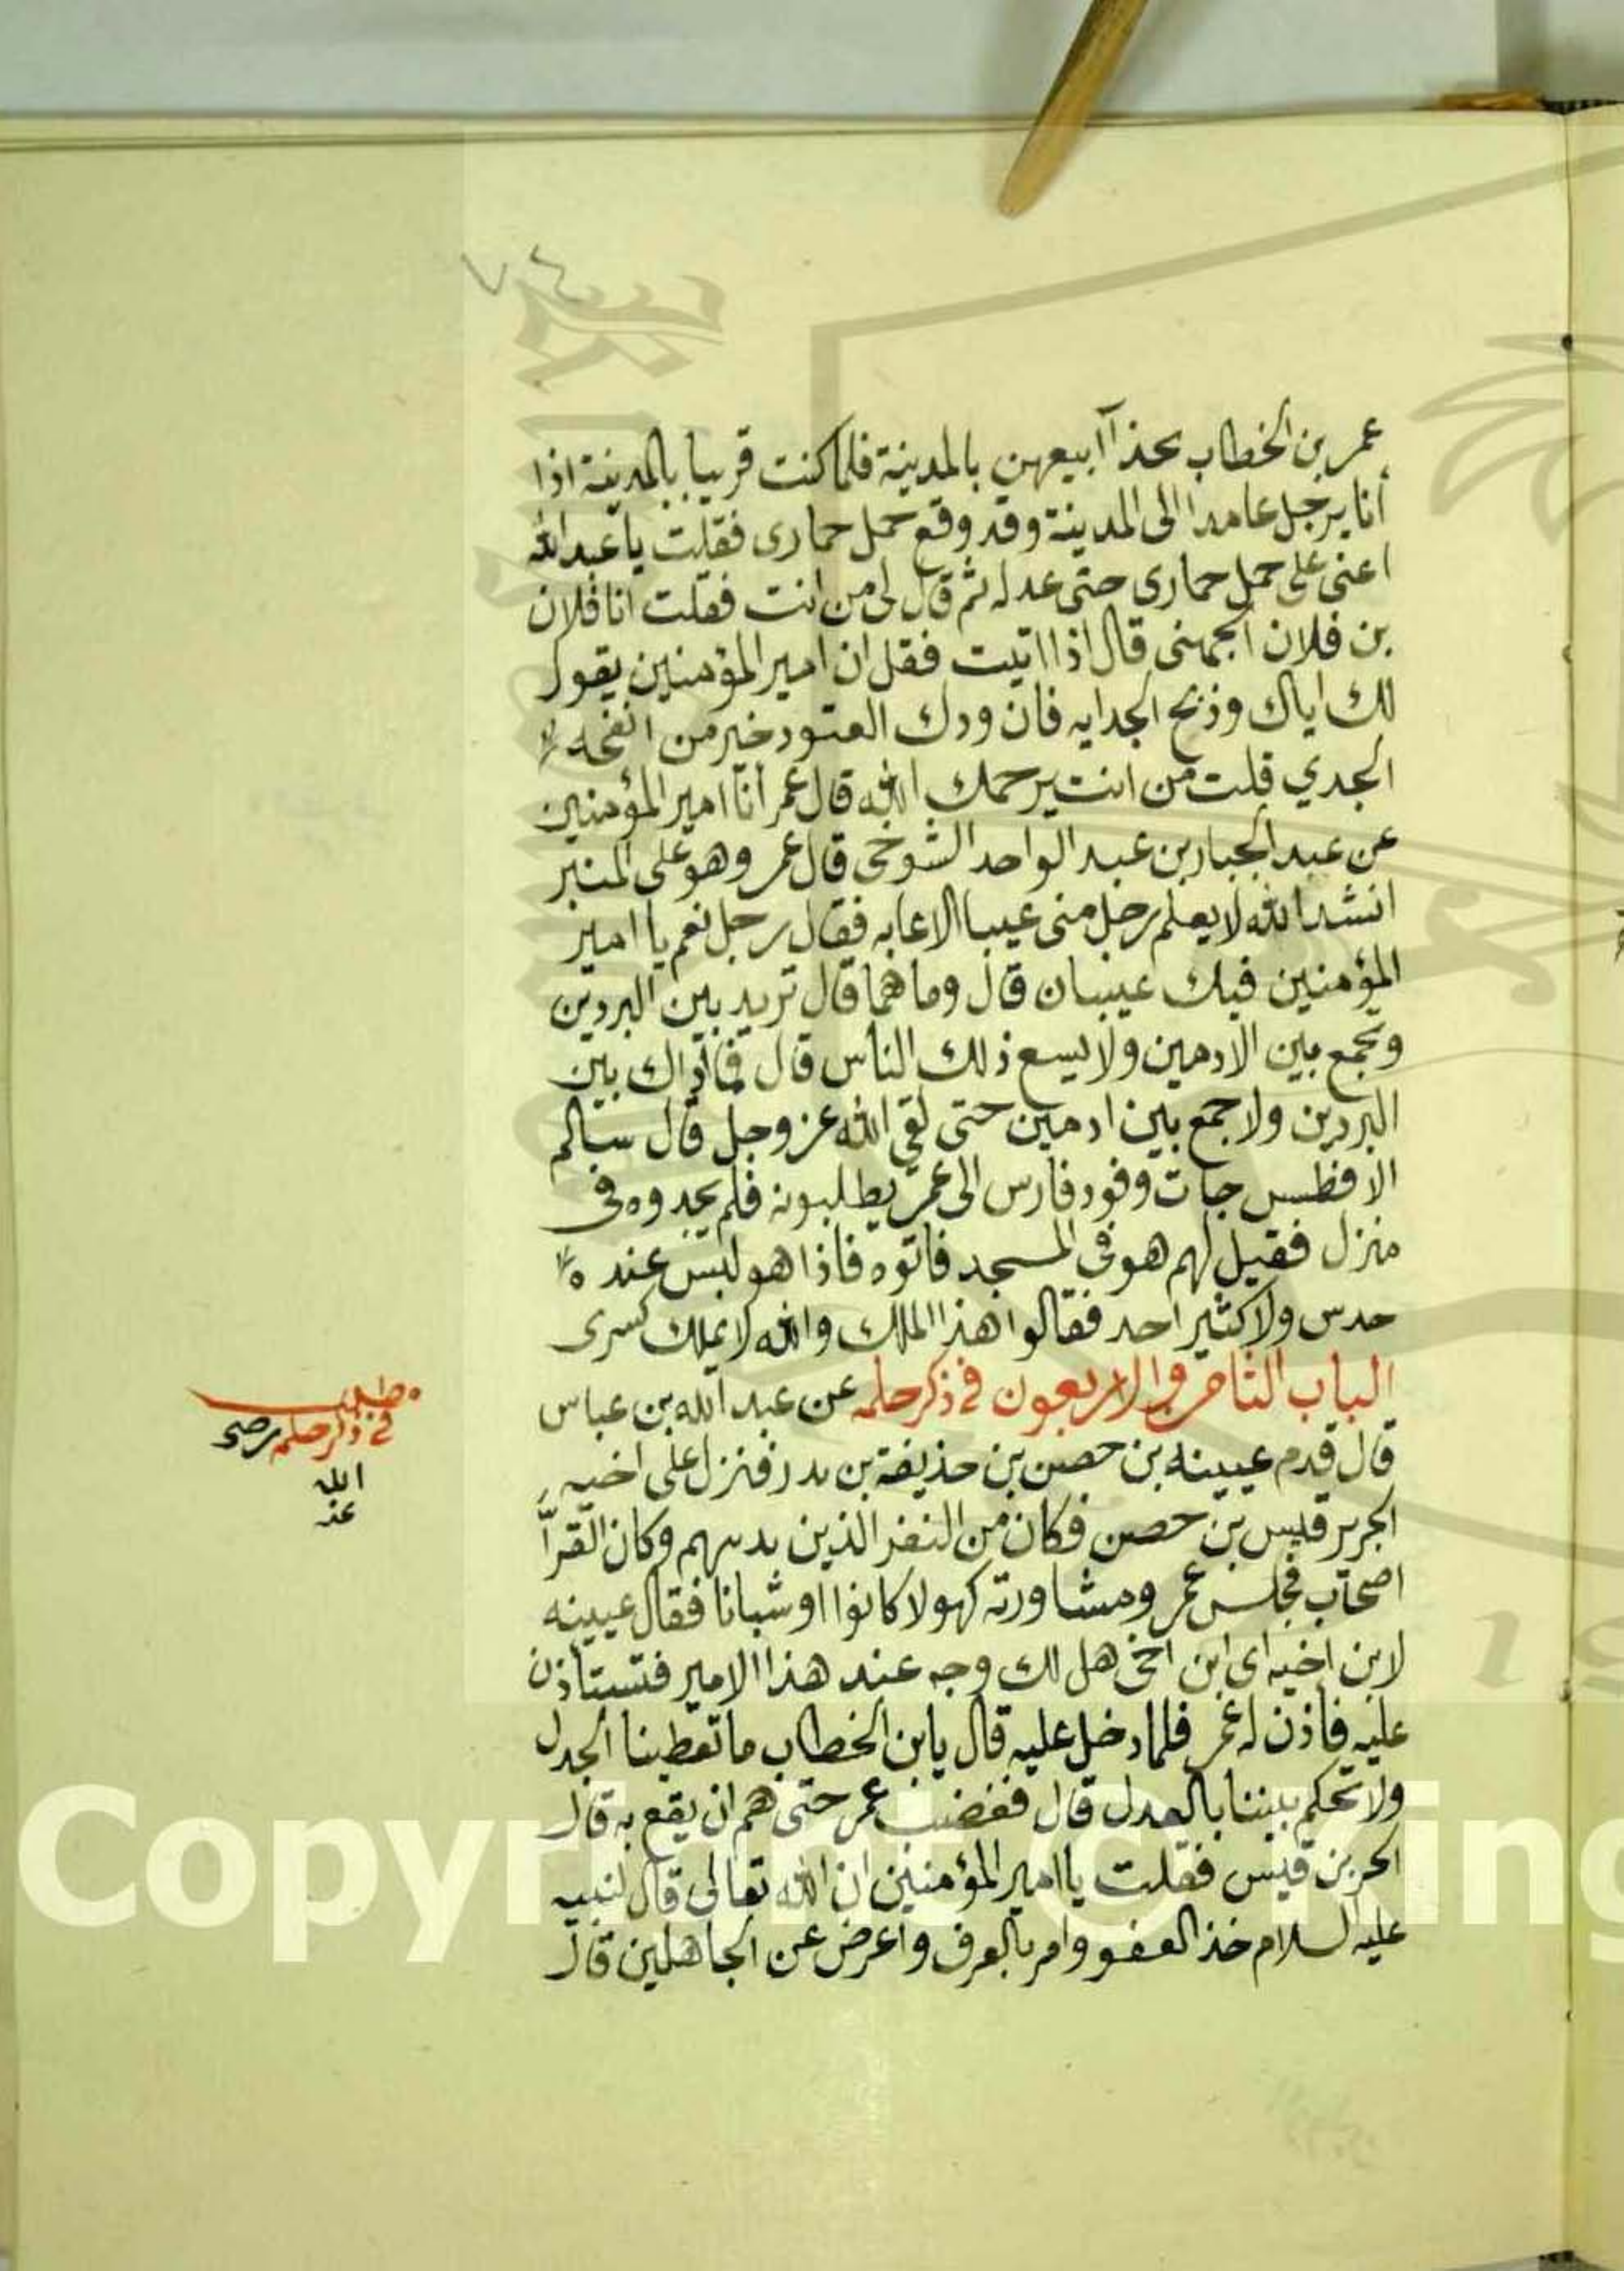 ٤٧
عمر بن الخطاب بحذاآ ابيعهن بالمدينة فلما كنت قريبا بالمدينة اذا
أنا برجل عامدا الى المدينة وقد وقع حمل حمارى فقلت يا عبد الله
اعنى على حمل حمارى حتى عدله ثم قال لى من انت فقلت انا فلان
بن فلان الجهنى قال اذا اتيت فقل ان امير المؤمنين يقول
لك اياك وذبح الجدايه فان ودك العتود خير من انفحه
الجدي قلت من انت يرحمك الله قال عمر أنا امير المؤمنين
عن عبد الجبار بن عبد الواحد التنوخى قال عمر وهو على المنبر
انشد الله لا يعلم رجل منى عيبا الا عابه فقال رجل نعم يا امير
المؤمنين فيك عيبان قال وما هما قال تريد بين البردين
وتجمع بين الادمين ولا يسع ذلك الناس قال فما أراك بين
البردين ولا جمع بين ادمين حتى لقى الله عز وجل قال سالم
الافطس جات وفود فارس الى عمر يطلبونه فلم يجدوه فى
منزل فقيل لهم هو فى المسجد فاتوه فاذا هو ليس عنده
حدس ولا كثير احد فقالوا هذا الملك والله لا يملك كسرى
الباب الثامن والاربعون فى ذكر حلمه عن عبد الله بن عباس
قال قدم عيينه بن حصن بن حذيفة بن بدر فنزل على اخيه
الجرير قيس بن حصن فكان من النفر الذين يدنيهم وكان القرآ
اصحاب مجلس عمر ومشاورته كهولا كانوا او شبانا فقال عيينه
لابن اخيه اى ابن اخى هل لك وجه عند هذا الامير فتستاذن
عليه فأذن له عمر فلما دخل عليه قال يابن الخطاب ما تعطينا الجدل
ولا تحكم بيننا بالعدل قال فغضب عمر حتى هم ان يقع به قال
الحر بن قيس فقلت يا امير المؤمنين ان الله تعالى قال لنبيه
عليه السلام خذ العفو وامر بالعرف واعرض عن الجاهلين قال
مطلب
فى ذكر حلمه رضى
الله
عنه
Copyright © King